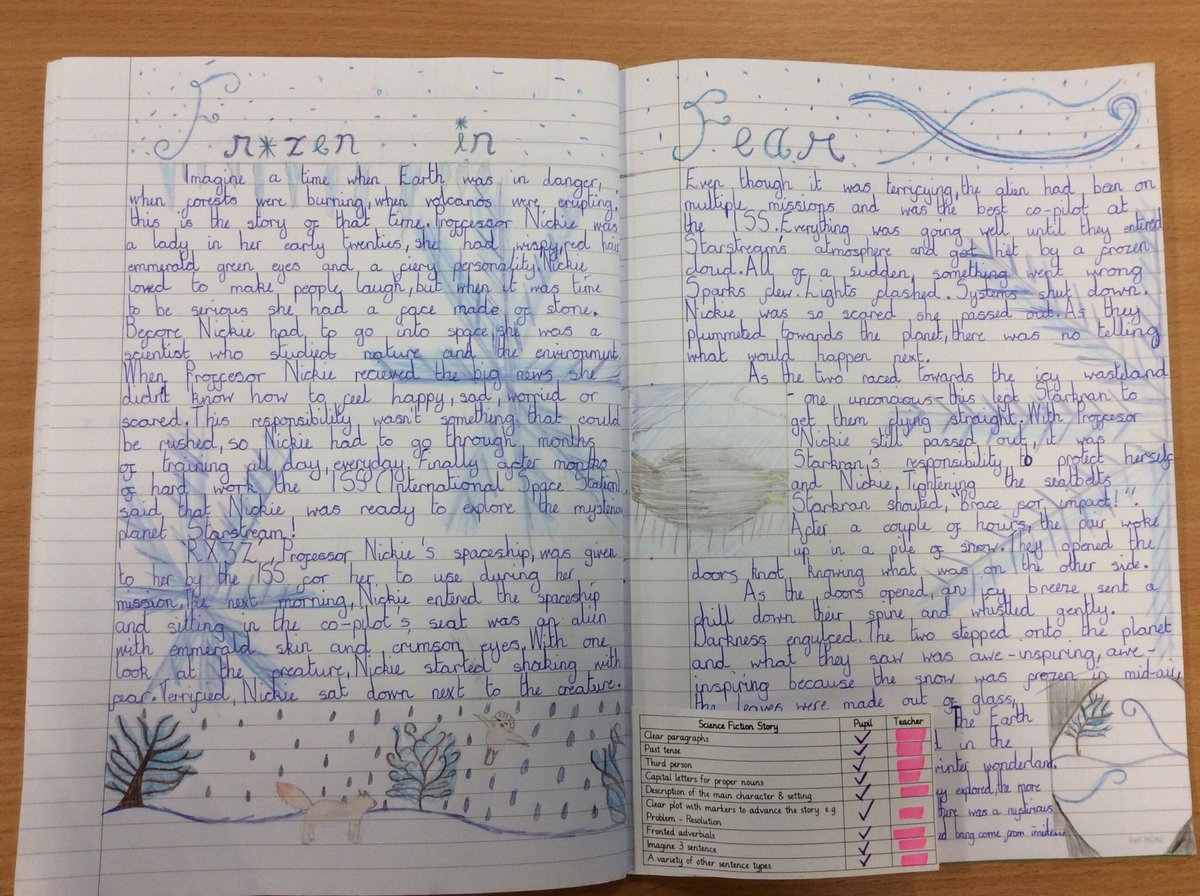 Frozen in
Imagine a time when Earth was in danger,
when forests were burning, when volcanos were erupting.
this is the story of that time. Proffessor Nickie was
a lady in her early twenties, she had wispy, red hair
emmerald green eyes and a fiery personality. Nickie
loved to make people laugh, but when it was time
to be serious she had a face made of stone.
Before Nickie had to go into space, she was a
scientist who studied nature and the environment.
When Proffesor Nickie recieved the big news she
didn't know how to feel happy, sad, worried or
scared. This responsibility wasn't something that could
be rushed, so Nickie had to go through months
of training all day, everyday. Finally after months
of hard work the ISS (International Space Station)
said that Nickie was ready to explore the mysterious
planet Starstream!
RX3Z, Professor Nickie's spaceship, was given
to her by the ISS for her to use during her
mission. The next morning, Nickie entered the spaceship
and sitting in the co-pilot's seat was an alien
with emmerald skin and crimson eyes. With one
look at the creature, Nickie started shaking with
fear. Terrified, Nickie sat down next to the creature.
Fear
Even though it was terrifying, the alien had been on
multiple missions and was the best co-pilot at
the ISS. Everything was going well until they entered
Starstream's atmosphere and got hit by a frozen
cloud. All of a sudden, something went wrong
Sparks flew. Lights flashed. Systems shut down.
Nickie was so scared she passed out. As they
plummeted towards the planet, there was no telling
what would happen next.
As the two raced towards the icy wasteland
- one unconcious - this left Starkran to
get them flying straight. With Proffesor
Nickie still passed out, it was
Starkran's responsibility to protect herself
and Nickie. Tightening the seatbelts
Starkran shouted, "Brace for impact!"
After a couple of hours, the pair woke
up in a pile of snow. They opened the
doors knot knowing what was on the other side.
As the doors opened, an icy breeze sent a
chill down their spine and whistled gently.
Darkness engulfed. The two stepped onto the planet
and what they saw was awe-inspiring, awe-
inspiring because the snow was frozen in mid-air,
the leaves were made out of glass,
The Earth
in the
winter wonderland.
explored, the more
there was a mysterious
bang come from inside
Science Fiction Story Pupil Teacher
Clear paragraphs ✓
Past tense ✓
Third person ✓
Capital letters for proper nouns ✓
Description of the main character & setting ✓
Clear plot with markers to advance the story e.g.
Problem - Resolution ✓
Fronted adverbials ✓
Imagine 3 sentence ✓
A variety of other sentence types ✓